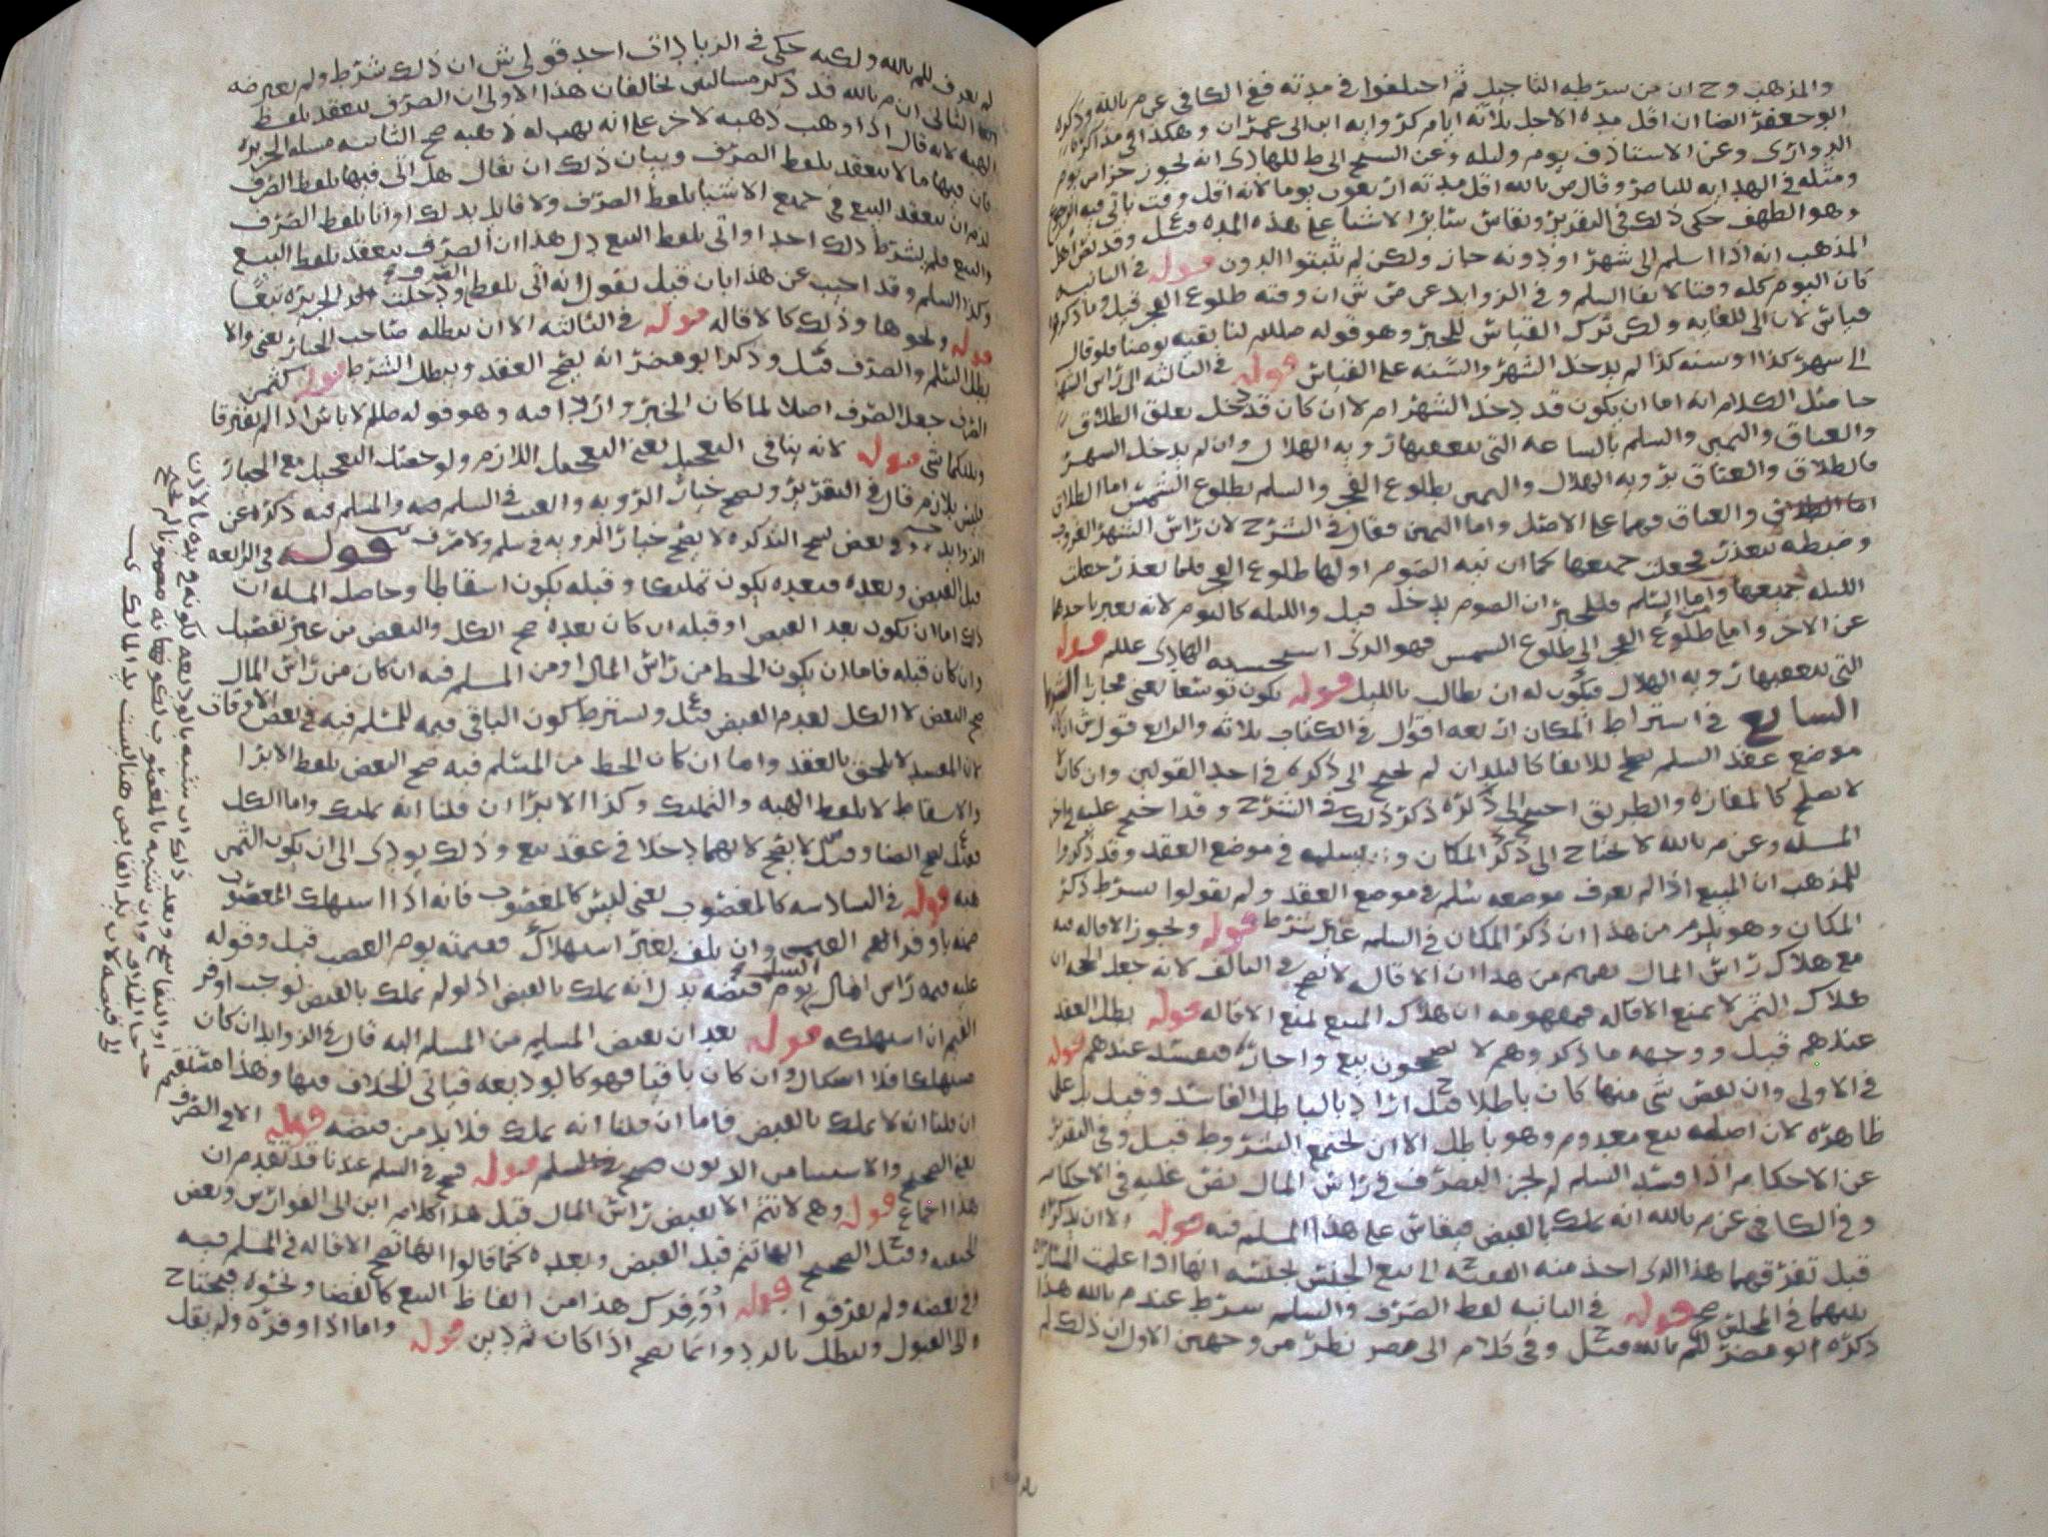 والمذهب وح ان من شرطه التاجيل ثم اختلفوا في مدته ففي الكافي عن م بالله وذكره
ابو جعفر ايضا ان اقل مدة الاجل ثلاثة ايام كروايه ابن ابي عمران وهكذا في مذاكرة
الدواري وعن الاستاذ يوم وليله وعن السيد ابي ط للهادي انه يجوز يوم
ومثله في الهدايه للناصر وقال ص بالله اقل مدته اربعون يوما لانه اقل وقت ياتي فيه
وهو الطهف حكى ذلك في التقرير ويقاس سائر الاشيا على هذه المده وقد نص اهل
المذهب انه اذا اسلم الى شهر او دونه جاز ولكن لم يثبتوا الدون قوله في الثانيه
كان اليوم كله وقتا لايفا السلم وفي الزوايد عن ض ش ان وقته طلوع الفجر قيل وما ذكروا
قياس لان الى للغايه ولكن ترك القياس للخبر وهو قوله صللم لنا بقيه يومنا فلو قال
الى شهر كذا او سنه كذا لم يدخل الشهر والسنه على القياس قوله في الثالثه الى راس الشهر
حاصل الكلام انه اما ان يكون قد دخل الشهر ام لا ان كان قد دخل تعلق الطلاق
والعتاق واليمين والسلم بالساعه التي يتعقبها رويه الهلال وان لم يدخل الشهر
فالطلاق والعتاق برويه الهلال واليمين بطلوع الفجر والسلم بطلوع الشمس اما الطلاق
اما الطلاق والعتاق فهما على الاصل واما اليمين فقال في الشرح لان راس الشهر الغروب
وضبطه يتعذر فجعلت جميعها كما ان نيه الصوم اولها طلوع الفجر فلما تعذر جعلت
الليله جميعها واما السلم فللخبر ان الصوم يدخل قيل والليله كاليوم لانه يعبر باحدهما
عن الاخر واما طلوع الفجر الى طلوع الشمس فهو الذي استحسنه الهادي عللم قوله
التي يتعقبها رويه الهلال فيكون له ان يطالب بالليل قوله يكون توسعا يعني مجازا الشرط
السابع في اشتراط المكان اربعه اقوال في الكتاب ثلاثه والرابع قول ش ان كان
موضع عقد السلم يصلح للايفا كالبلدان لم يحتج الى ذكره في احد القولين وان كان لا
لا يصلح كالمفازه والطريق احتيج الى ذكره ذكر ذلك في الشرح وقد احتج عليه في اخر
المسله وعن م بالله لا يحتاج الى ذكر المكان ويسلمه في موضع العقد وقد ذكروا
للمذهب ان المبيع اذا لم يعرف موضعه سلم في موضع العقد ولم يقولوا شرط ذكر
المكان وهو يلزم من هذا ان ذكر المكان في السلم غير شرط قوله ويجوز الاقاله فيه
مع هلاك راس المال يفهم من هذا ان الاقاله لا تصح في التالف لانه جعل
هلاك الثمن لا يمنع الاقاله فمفهومه ان هلاك المبيع يمنع الاقاله قوله بطل العقد
عندهم قيل ووجهه ما ذكر وهم لا يصححون بيع واجاره فيفسد عندهم قوله
في الاولى وان لبعض شي منها كان باطلا قيل اراد بالباطل الفاسد وقيل بل على
ظاهره لان اصله بيع معدوم وهو باطل الا ان تجتمع الشروط قيل وفي التقرير
عن الاحكام اذا فسد السلم لم يجز التصرف في راس المال نص عليه في الاحكام
وفي الكافي عن م بالله انه يملك بالقبض فيقاس على هذا المسلم فيه قوله الا ان يذكره
قبل تفرقهما هذا الذي اخذ منه الفقيه ان بيع الجنس بجنسه انها اذا علمت المساواه
بينهما في المجلس صح قوله في الثانيه لفظ الصرف والسلم شرط عند م بالله هذا
ذكره ابو مضر للم بالله قيل وفي كلام ابي مضر نظر من وجهين الاول ان ذلك لم
لم يعرف للم بالله ولكنه حكى في الزيادات احد قولي ش ان ذلك شرط ولم يعترضه
الثاني ان م بالله قد ذكر مسالتين تخالفان هذا الاولى ان الصرف ينعقد بلفظ
الهبه لانه قال اذا وهب ذهبه لاخر على انه يهب له ذهبه صح الثانيه مسله الجريره
فان فيها ما لا ينعقد بلفظ الصرف وبيان ذلك ان يقال هل اتى فيها بلفظ الصرف
لزم ان ينعقد البيع في جميع الاشيا بلفظ الصرف ولا قائل بذلك او اتا بلفظ الصرف
والبيع فلم يشترط ذلك احد او اتى بلفظ البيع دل هذا ان الصرف ينعقد بلفظ البيع
وكذا السلم وقد اجيب عن هذا بان قيل نقول انه اتى بلفظ الصرف ودخلت الجريره تبعا
قوله ونحوها وذلك كالاقاله قوله في الثالثه الا ان يبطله صاحب الخيار يعني والا
بطل السلم والصرف قيل وذكر ابو مضر انه يصح العقد ويبطل الشرط قوله كثمن
الصرف جعل الصرف اصلا لما كان الخبر واردا فيه وهو قوله صللم لا باس اذا لم تفترقا
وبينكما شي قوله لانه ينافي التعجيل يعني التعجيل اللازم ولو حصل التعجيل مع الخيار
فليس بلازم قال في التقرير ويصح خيار الرويه والعيب في السلم فيه والمسلم فيه ذكره عن
الزوايد وفي بعض نسخ التذكره لا يصح خيار الرويه في سلم ولا صرف قوله في الرابعه
قبل القبض وبعده فبعده يكون تمليكا وقبله يكون اسقاطا وحاصل المسله ان
ذلك اما ان يكون بعد القبض او قبله ان كان بعده صح الكل والبعض من غير تفصيل
وان كان قبله فاما ان يكون الحط من راس المال او من المسلم فيه ان كان من راس المال
صح البعض لا الكل لعدم القبض قيل ويشترط كون الباقي قيمه للمسلم فيه في بعض الاوقات
لان المفسد لا يلحق بالعقد واما ان كان الحط من المسلم فيه صح البعض بلفظ الابرا
والاسقاط لا بلفظ الهبه والتمليك وكذا الابرا ان قلنا انه تمليك واما الكل
فقيل يصح ايضا وقيل لا يصح لانهما دخلا في عقد بيع وذلك يودي الى ان يكون الثمن
هبه قوله في السادسه كالمغصوب يعني ليس كالمغصوب فانه اذا استهلك المغصوب
ضمنه باوفر القيم وان تلف بغير استهلاك فقيمته يوم الغصب قيل وقوله
عليه قيمه راس المال يوم قبضه يدل انه يملك بالقبض اذ لو لم يملك بالقبض لوجب اوفر
القيم ان استهلكه قوله بعد ان يقبض المسلم من المسلم اليه قال في الزوايد ان كان
مستهلكا فلا اشكال وان كان باقيا فهو كالوديعه فياتي الخلاف فيها وهذا مستقيم
ان قلنا انه لا يملك بالقبض فاما ان قلنا انه يملك فلا بد من قبضه قوله الا في الصرف
يعني الصحيح والاستثنا من الديون صحيح قوله فيصح في السلم عندنا قد تقدم ان
هذا اجماع قوله وهي لا تتم الا بقبض راس المال قيل هذا كلام ابن ابي الفوارس وبعض
الحنفيه وقيل الصحيح انها تتم قبل القبض وبعده كما قالوا انها تصح الاقاله في المسلم فيه
قبل قبضه ولم يفرقوا قوله او فزدك هذا من الفاظ البيع كالقضا ونحوه فيحتاج
الى القبول ويبطل بالرد وانما يصح اذا كان ثم دين قوله واما اذا اوفره ولم يقل
او التفاسخ وبعد ذلك ان شبه بالوديعه لكونه في يده بالاذن
جا الخلاف وان شبه بالمغصوب لكونها مضمونا لم يحتج
الى قبضه لان يد القابض هنا ليست يد المالك